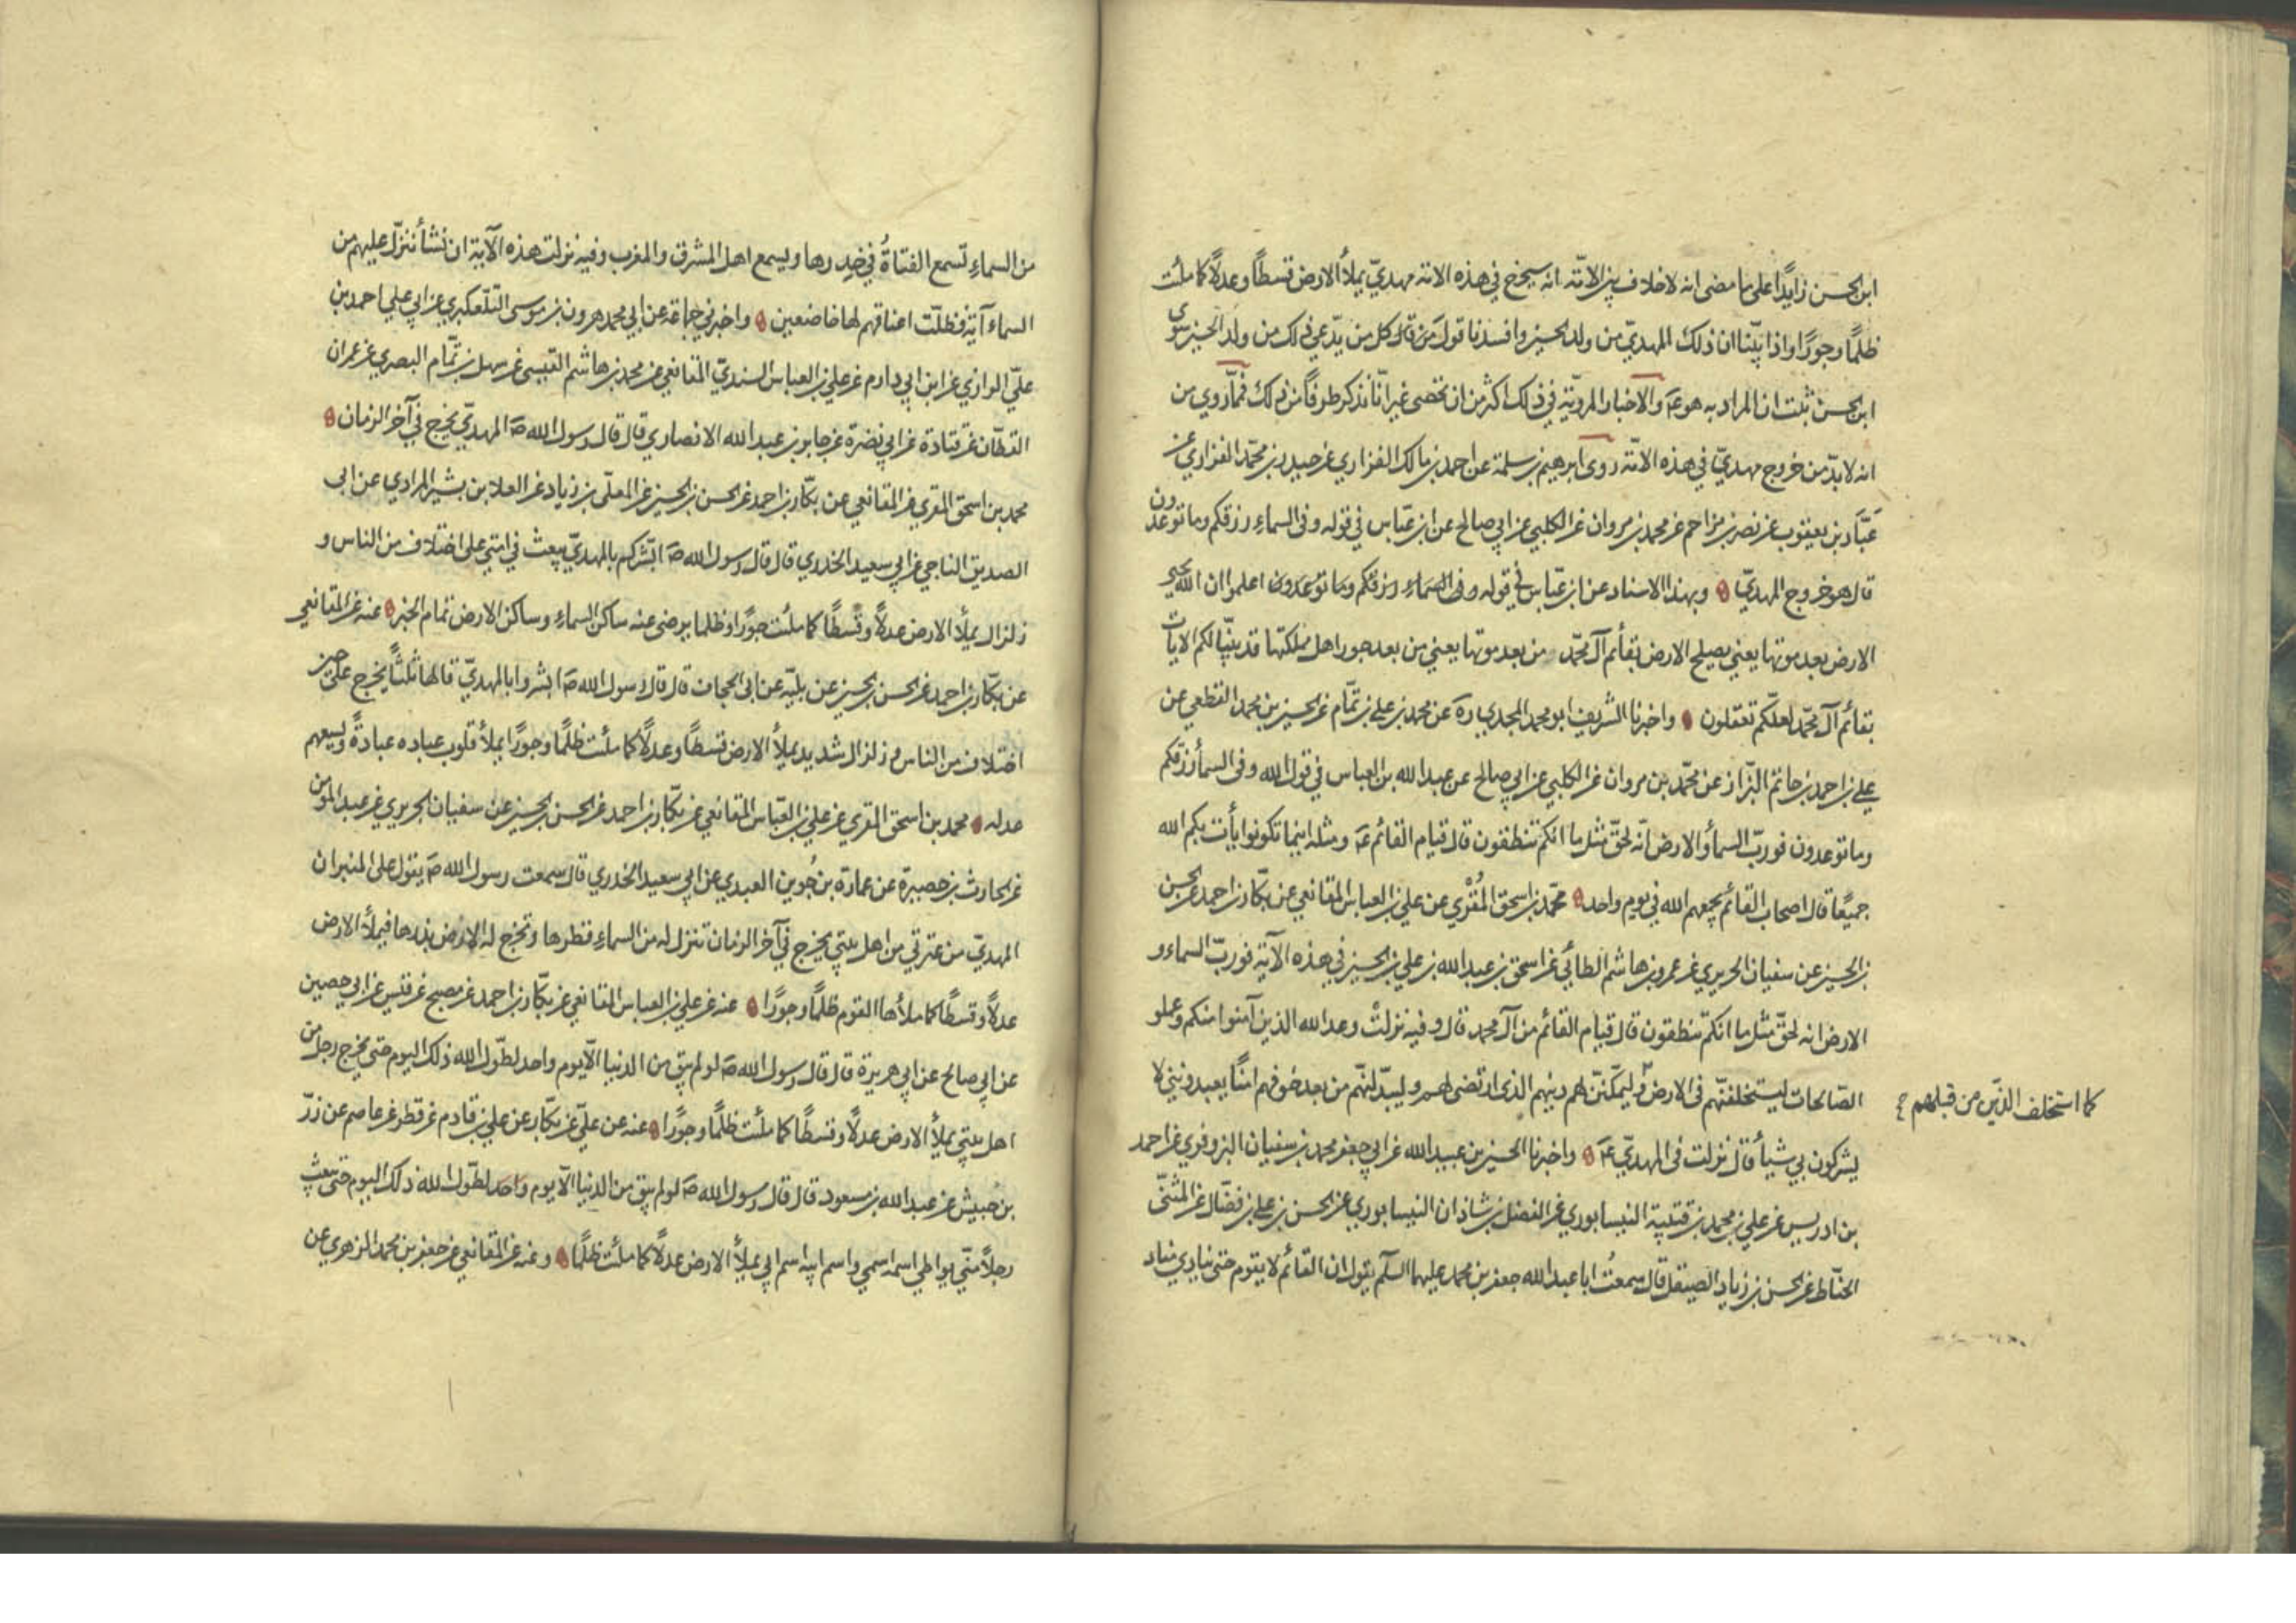 ابن الحسن زايدًا على ما مضى انه لا خلاف بين الامّة انه سيخرج في هذه الامة مهديّ يملأ الارض قسطًا وعدلًا كما ملئت
ظلمًا وجورًا واذا بيّنّا ان ذلك المهديّ من ولد الحسين وافسدنا قول من قال وكل من يدّعي ذلك من ولد الحسين سوى
ابن الحسن ثبت ان المراد به هو عه والاخبار المرويّة في ذلك اكثر من ان تحصى غير انّا نذكر طرفًا من ذلك فممّا روي من
انه لابدّ من خروج مهديّ في هذه الامّة روى ابرهيم بن سلمة عن احمد بن مالك الفزاري عن حيدر بن محمّد الفزاري عن
عبّاد بن يعقوب عن نصر بن مزاحم عن محمد بن مروان عن الكلبي عن ابي صالح عن ابن عبّاس في قوله وفى السماء رزقكم وما توعدون
قال هو خروج المهديّ وبهذا الاسناد عن ابن عبّاس في قوله وفى السماء رزقكم وما توعدون اعلموا ان الله يحيي
الارض بعد موتها يعني يصلح الارض بقائم آل محمّد من بعد موتها يعني من بعد جور اهل مملكتها قد بيّنّا لكم الايات
بقائم آل محمّد لعلكم تعقلون واخبرنا الشريف ابو محمد المحمدي ره عن محمد بن علي بن تمّام عن الحسين بن محمد القطعي عن
علي بن احمد بن حاتم البزّاز عن محمّد بن مروان عن الكلبي عن ابي صالح عن عبد الله بن العباس في قول الله وفى السمأ رزقكم
وما توعدون فوربّ السمأ والارض انّه لحقّ مثل ما انكم تنطقون قال قيام القائم عه ومثله اينما تكونوا يأت بكم الله
جميعًا قال اصحاب القائم يجمعهم الله في يوم واحد محمّد بن اسحق المُقْري عن علي بن العباس المقانعي عن بكّار بن احمد عن الحسن
بن الحسين عن سفيان الجريري عن عمرو بن هاشم الطائي عن اسحق بن عبد الله بن علي بن الحسين في هذه الآية فوربّ السماء و
الارض انه لحقّ مثل ما انكم تنطقون قال قيام القائم من آل محمد قال وفيه نزلتْ وعد الله الذين آمنوا منكم وعملو
الصّالحات ليستخلفنّهم فى الارض وليمكننّ لهم دينهم الذى ارتضى لهم وليبدّلنّهم من بعد خوفهم امنًا يعبدونني لا
كما استخلف الذين من قبلهم
يشركون بي شيأ قال نزلت فى المهديّ عه واخبرنا الحسين بن عبيد الله عن ابي جعفر محمد بن سفيان البزوفري عن احمد
بن ادريس عن علي بن محمد بن قتيبة النيسابوري عن الفضل بن شاذان النيسابوري عن الحسن بن علي بن فضّال عن المثنّى
الحنّاط عن الحسن بن زياد الصيقل قال سمعتُ ابا عبد الله جعفر بن محمد عليهما السلم يقول ان القائم لا يقوم حتى ينادي مناد
من السماء تسمع الفتاةُ في خِدرها ويسمع اهل المشرق والمغرب وفيه نزلت هذه الآية ان نشأ ننزّل عليهم من
السماء آية فظلّت اعناقهم لها خاضعين واخبرني جماعة عن ابي محمد هرون بن موسى التلّعكبري عن ابي علي احمد بن
عليّ الرازي عن ابن ابي دارم عن علي بن العباس السنديّ المقانعي عن محمد بن هاشم القيسي عن سهل بن تمّام البصري عن عمران
القطّان عن قتادة عن ابي نضرة عن جابر بن عبد الله الانصاري قال قال رسول الله صه المهديّ يخرج في آخر الزمان
محمد بن اسحق المقري عن المقانعي عن بكّار بن احمد عن الحسن بن الحسين عن المعلّى بن زياد عن العلا بن بشير المرادي عن ابى
الصديق الناجي عن ابي سعيد الخدري قال قال رسول الله صه ابشّركم بالمهديّ يبعث في امتي على اختلاف من الناس و
زلزال يملأ الارض عدلًا وقسطًا كما ملئت جورًا وظلما يرضى عنه ساكن السماء وساكن الارض تمام الخبر عنه عن المقانعي
عن بكّار بن احمد عن الحسن بن الحسين عن بليّه عن ابى الحجاف قال قال رسول الله صه ابشروا بالمهديّ قالها ثلثًا يخرج على حين
اختلاف من الناس و زلزال شديد يملأ الارض قسطًا وعدلًا كما ملئت ظلمًا وجورًا يملأ قلوب عباده عبادةً ويسعهم
عدله محمد بن اسحق المقري عن علي بن العبّاس المقانعي عن بكّار بن احمد عن الحسن بن الحسين عن سفيان الجريري عن عبد المومن
عن الحارث بن حصيرة عن عمارة بن جُوين العبدي عن ابي سعيد الخدري قال سمعت رسول الله صه يقول على المنبر ان
المهديّ من عترتي من اهل بيتي يخرج في آخر الزمان تنزل له من السماء قطرها وتخرج له الارض بذرها فيملأ الارض
عدلًا وقسطًا كما ملأها القوم ظلمًا وجورًا عنه عن علي بن العباس المقانعي عن بكّار بن احمد عن مصبح عن قيس عن ابي حصين
عن ابي صالح عن ابي هريرة قال قال رسول الله صه لو لم يبق من الدنيا الّا يوم واحد لطوّل الله ذلك اليوم حتى يخرج رجل من
اهل بيتي يملأ الارض عدلًا وقسطًا كما ملئت ظلمًا وجورًا عنه عن عليّ عن بكّار عن علي بن قادم عن فطر عن عاصم عن زرّ
بن حُبيش عن عبد الله بن مسعود قال قال رسول الله صه لو لم يبق من الدنيا الّا يوم واحد لطوّل الله ذلك اليوم حتى يبعث
رجلًا منّي يواطي اسمه اسمي واسم ابيه اسم ابي يملأ الارض عدلًا كما ملئت ظلمًا وعنه عن المقانعي عن جعفر بن محمد الزهري عن